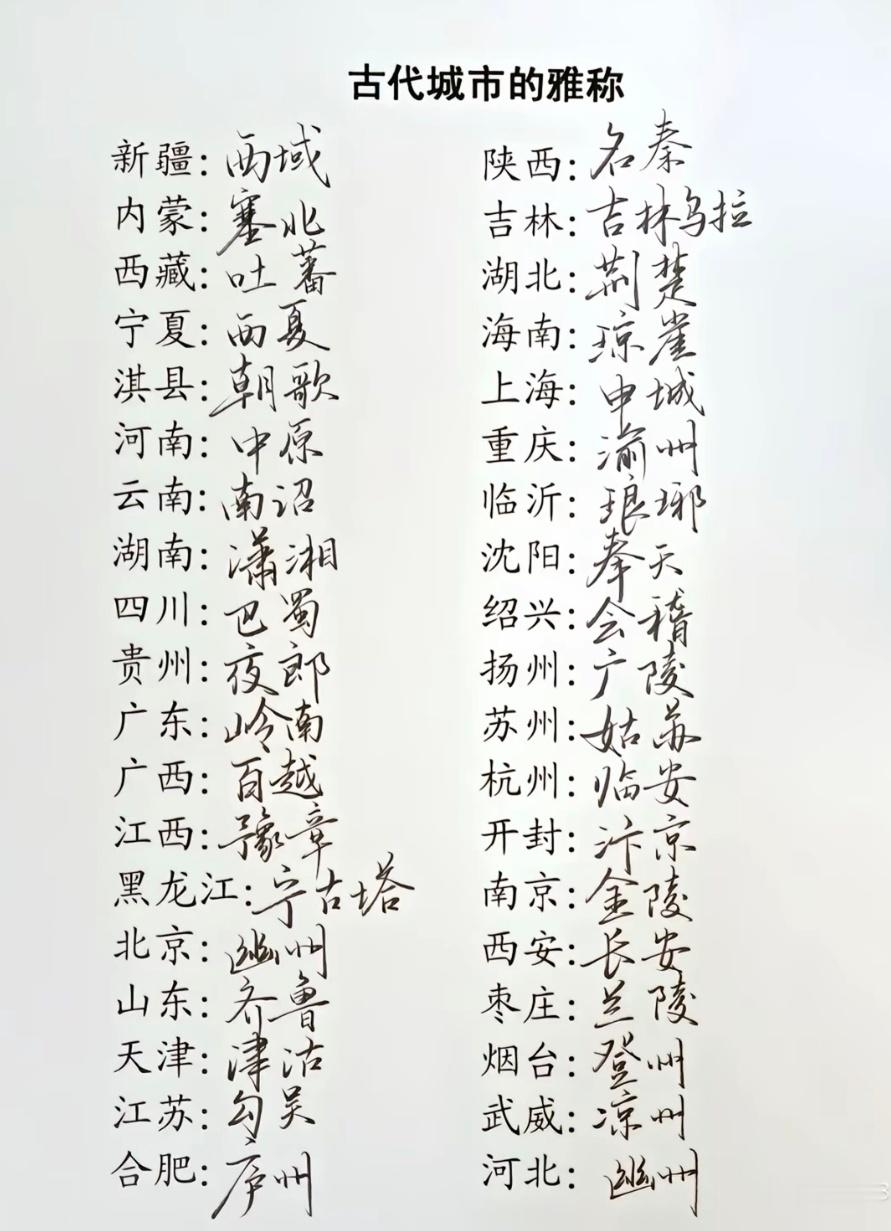 古代城市的雅称
新疆:西域
内蒙:塞北
西藏:吐蕃
宁夏:西夏
淇县:朝歌
河南:中原
云南:南诏
湖南:潇湘
四川:巴蜀
贵州:夜郎
广东:岭南
广西:百越
江西:豫章
黑龙江:宁古塔
北京:幽州
山东:齐鲁
天津:津沽
江苏:勾吴
合肥:庐州
陕西:名秦
吉林:吉林乌拉
湖北:荆楚
海南:琼崖
上海:申城
重庆:渝州
临沂:琅琊
沈阳:奉天
绍兴:会稽
扬州:广陵
苏州:姑苏
杭州:临安
开封:汴京
南京:金陵
西安:长安
枣庄:兰陵
烟台:登州
武威:凉州
河北:幽州